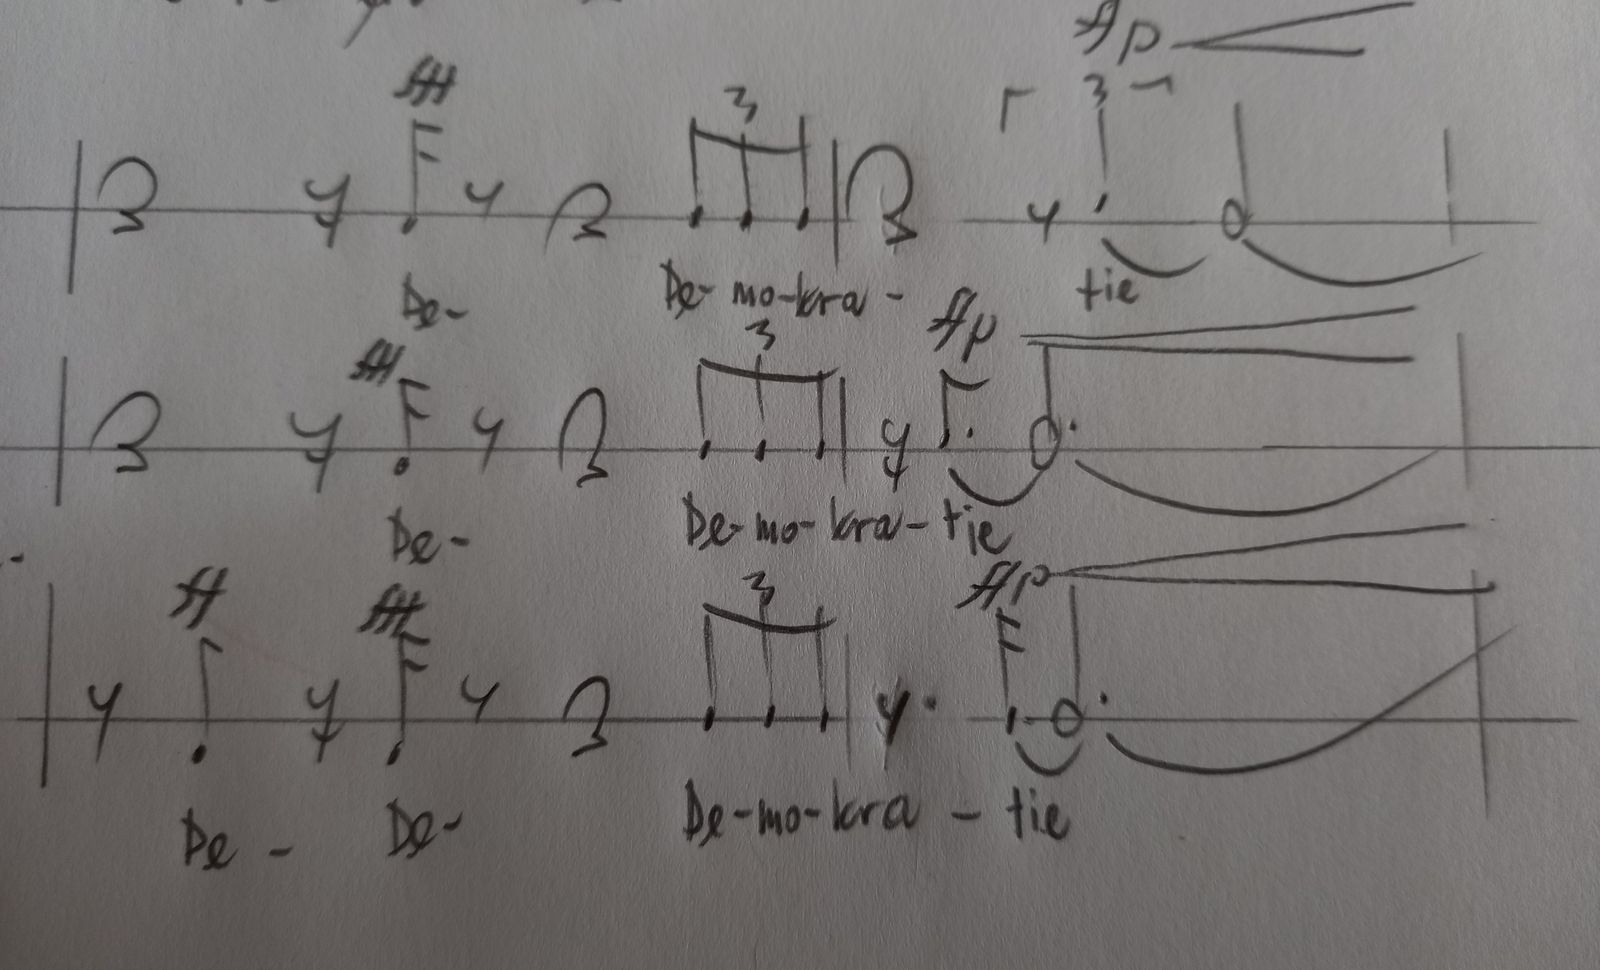 fff 3 ffp
3
De- De-mo-kra- tie
fff 3 ffp
De- De-mo-kra-tie
ff fff 3 ffp
De - De- De-mo-kra - tie